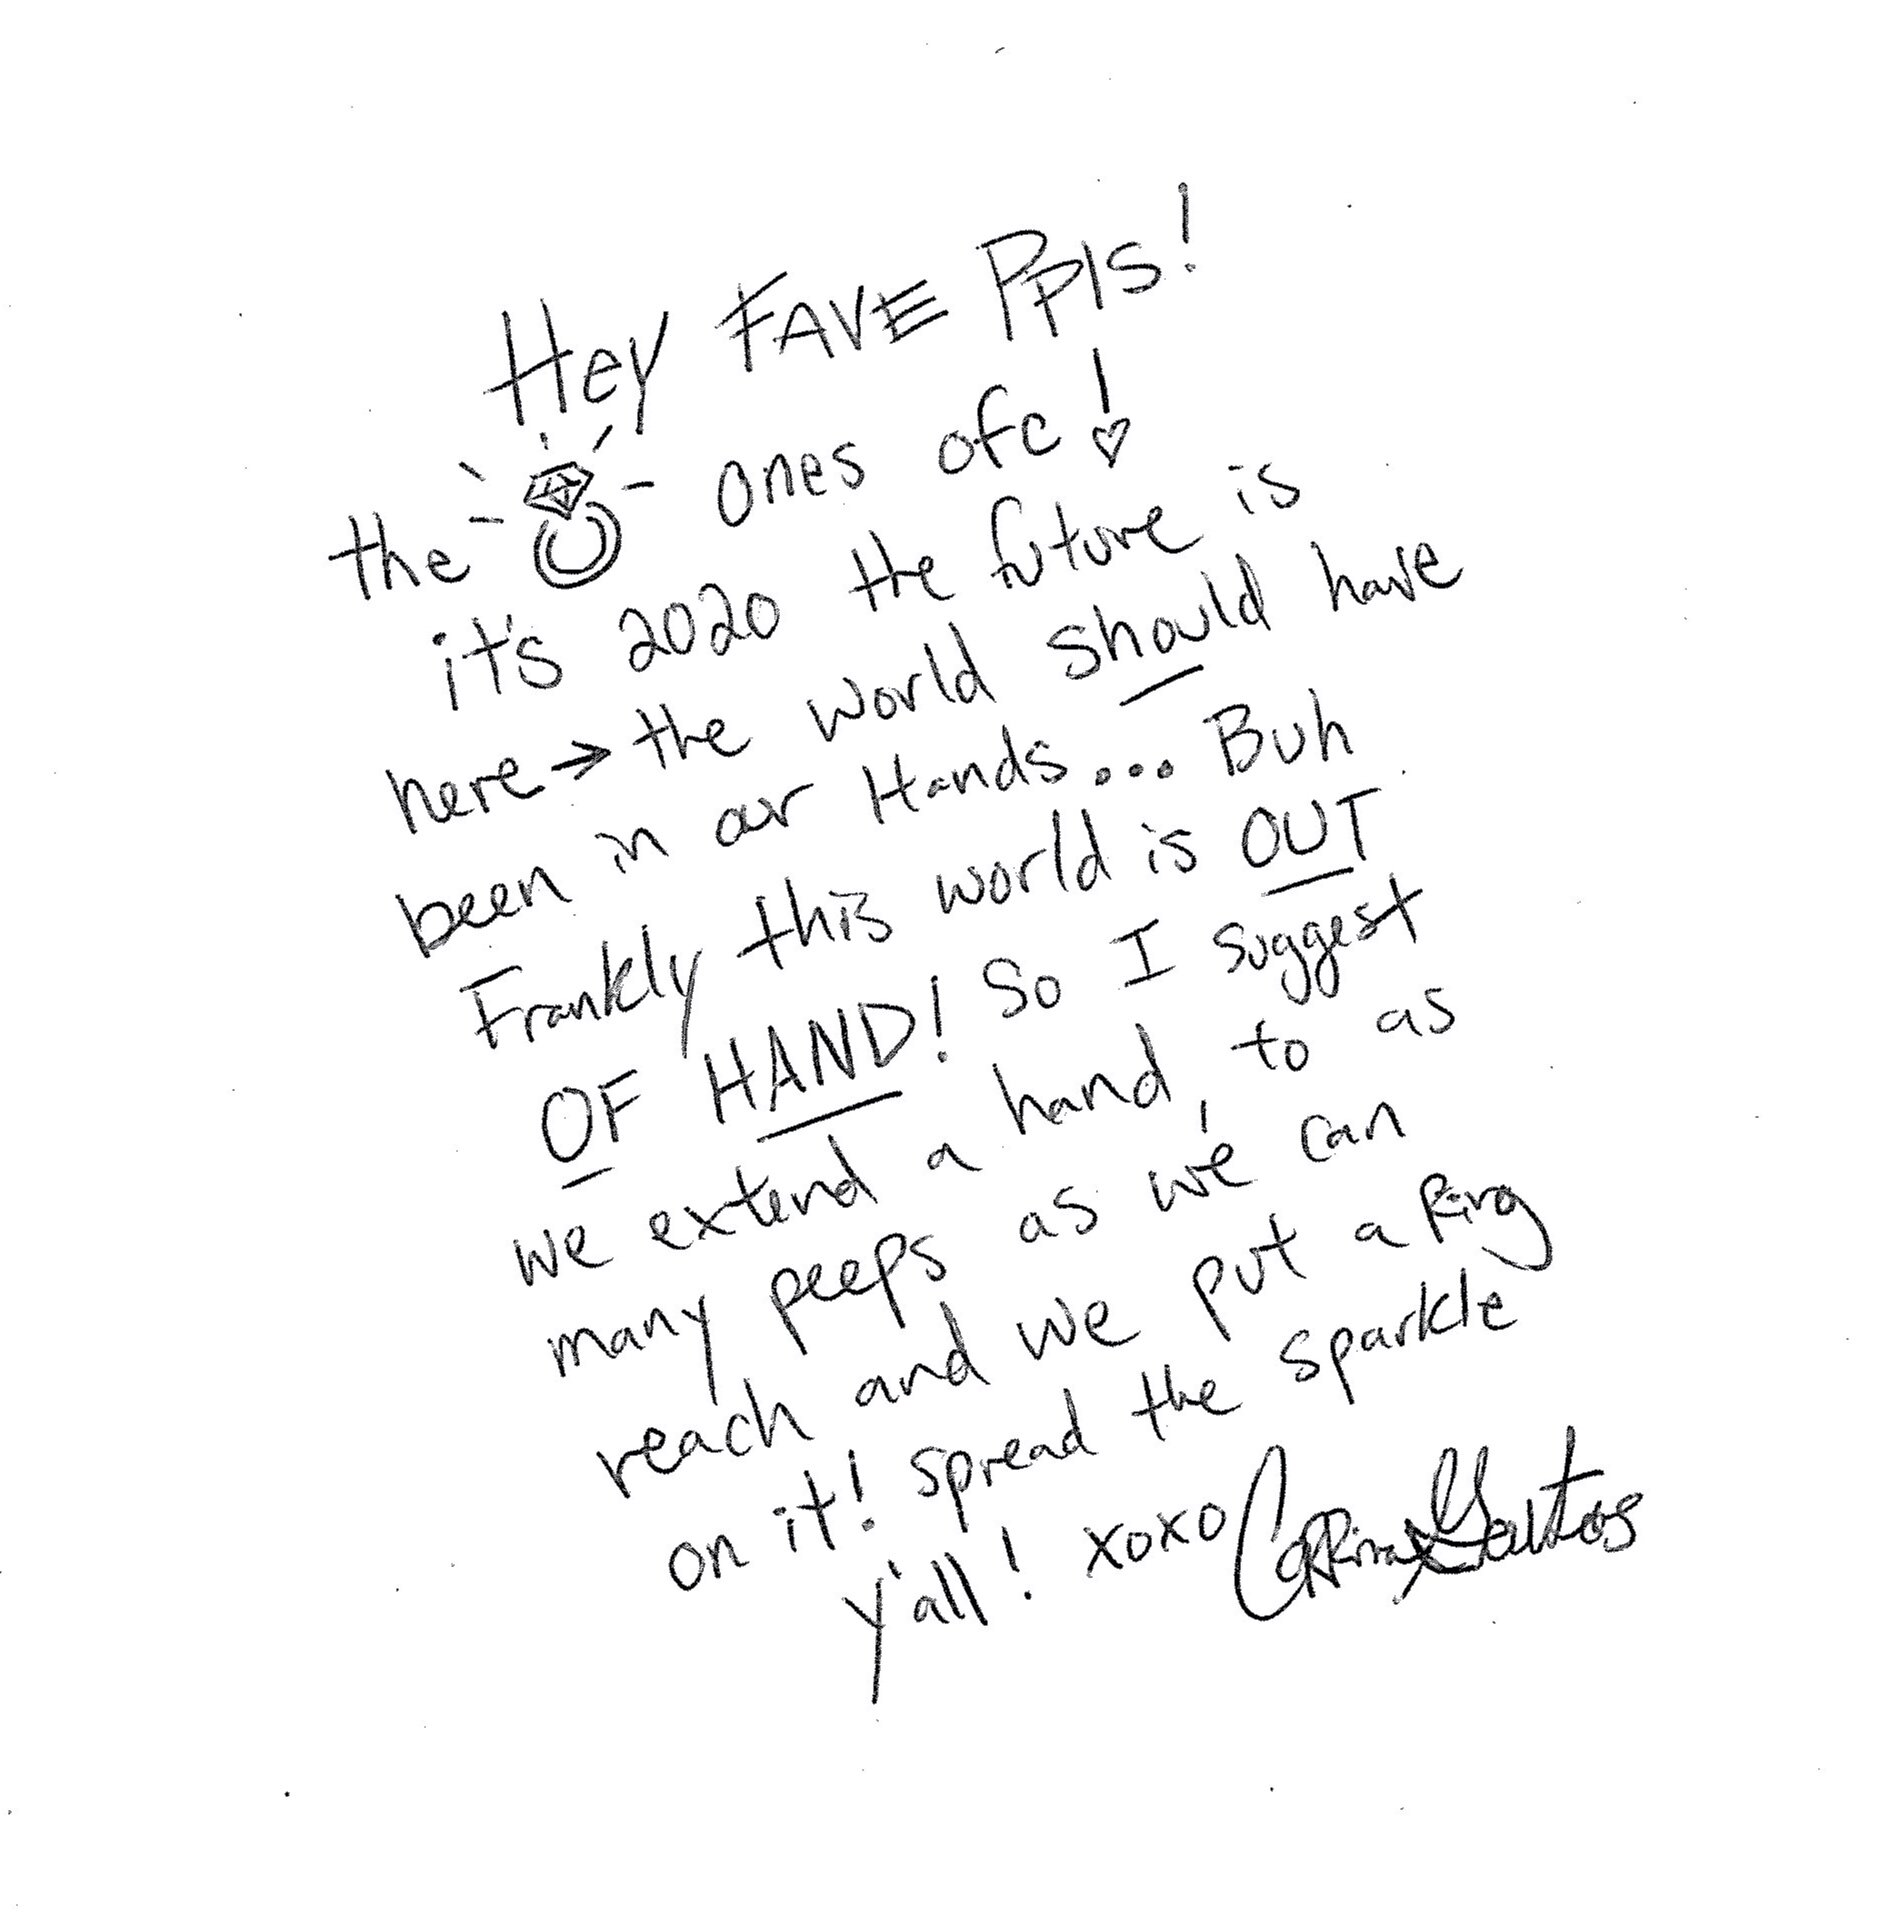 Hey FAVE PPlS!
the 💍 ones ofc!
it's 2020 the future is
here → the world should have
been in our Hands... Buh
Frankly this world is OUT
OF HAND! So I suggest
we extend a hand, to as
many peeps as we can
reach and we put a Ring
on it! spread the sparkle
y'all! xoxo